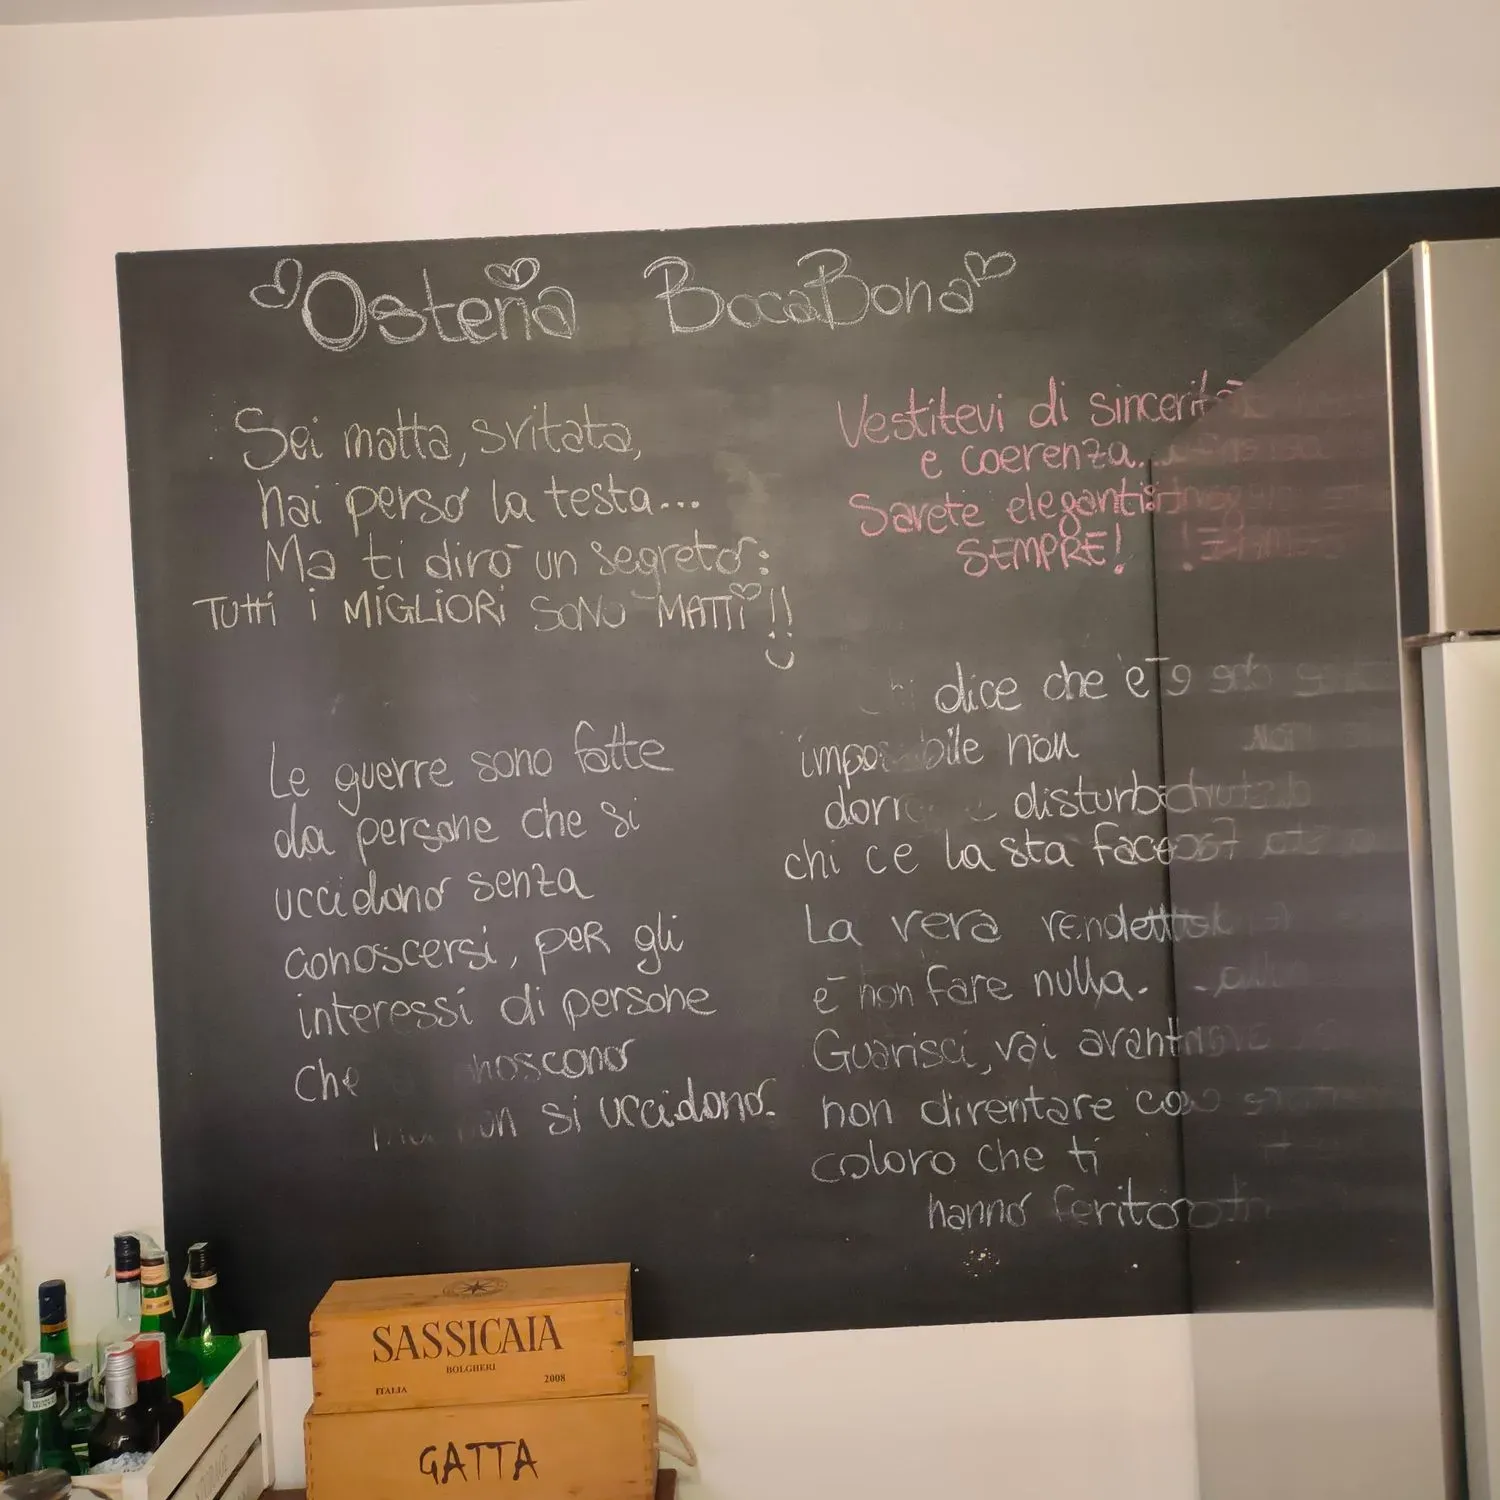 Osteria BocaBona
Sei matta, svitata,
hai perso la testa...
Ma ti dirò un segreto:
TUTTi i MiGLiORi SONO MATTi!!
Vestitevi di sincerità
e coerenza...
Sarete elegantis
SEMPRE!
Le guerre sono fatte
da persone che si
uccidono senza
conoscersi, PER gli
interessi di persone
che
si uccidono.
dice che è
non
chi ce la sta face
La vera vendetta
è non fare nulla.
Guarisci, vai avant
non diventare co
coloro che ti
hanno ferito
SASSICAIA
BOLGHERI
ITALIA 2008
GATTA